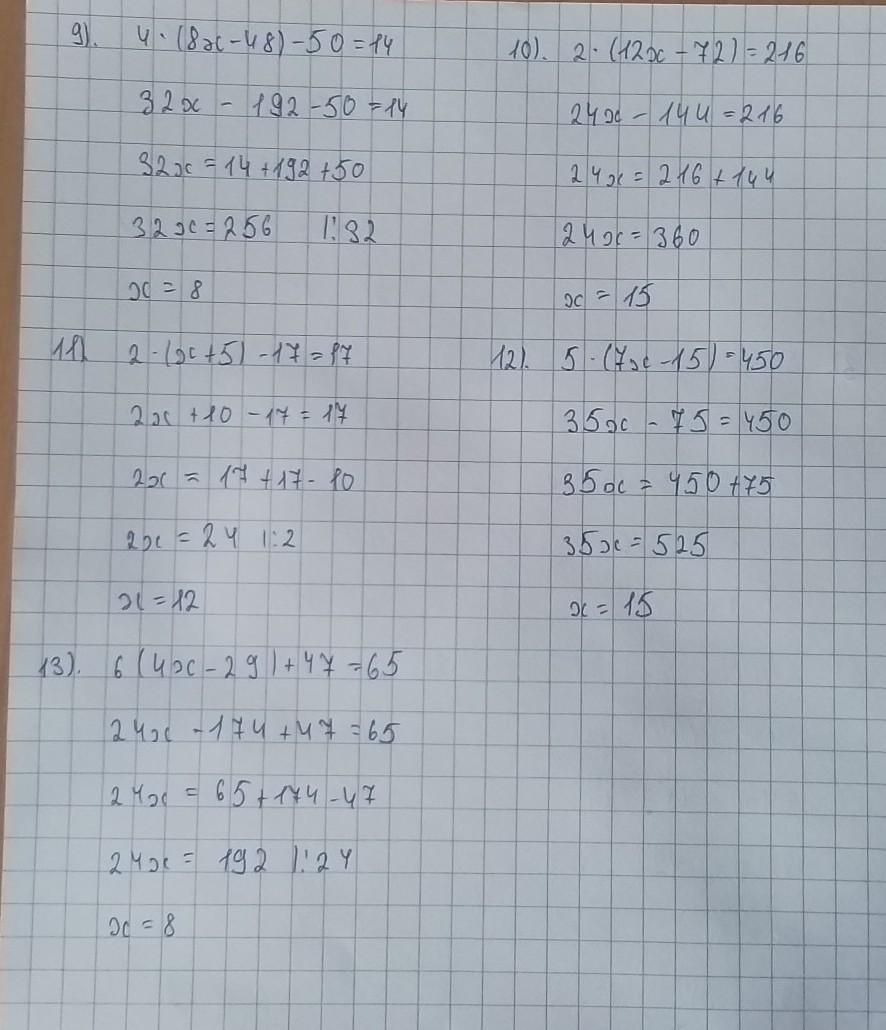 9). 4·(8x-48)-50=14
32x - 192-50=14
32x=14+192+50
32x=256 |:32
x = 8
10). 2·(12x-72)=216
24x-144=216
24x=216+144
24x=360
x = 15
11) 2·(x+5)-17=17
2x+10-17=17
2x = 17+17-10
2x = 24 |:2
x=12
12). 5·(7x-15)=450
35x-75=450
35x=450+75
35x=525
x=15
13). 6(4x-29)+47=65
24x-174+47=65
24x = 65+174-47
24x= 192 |:24
x=8